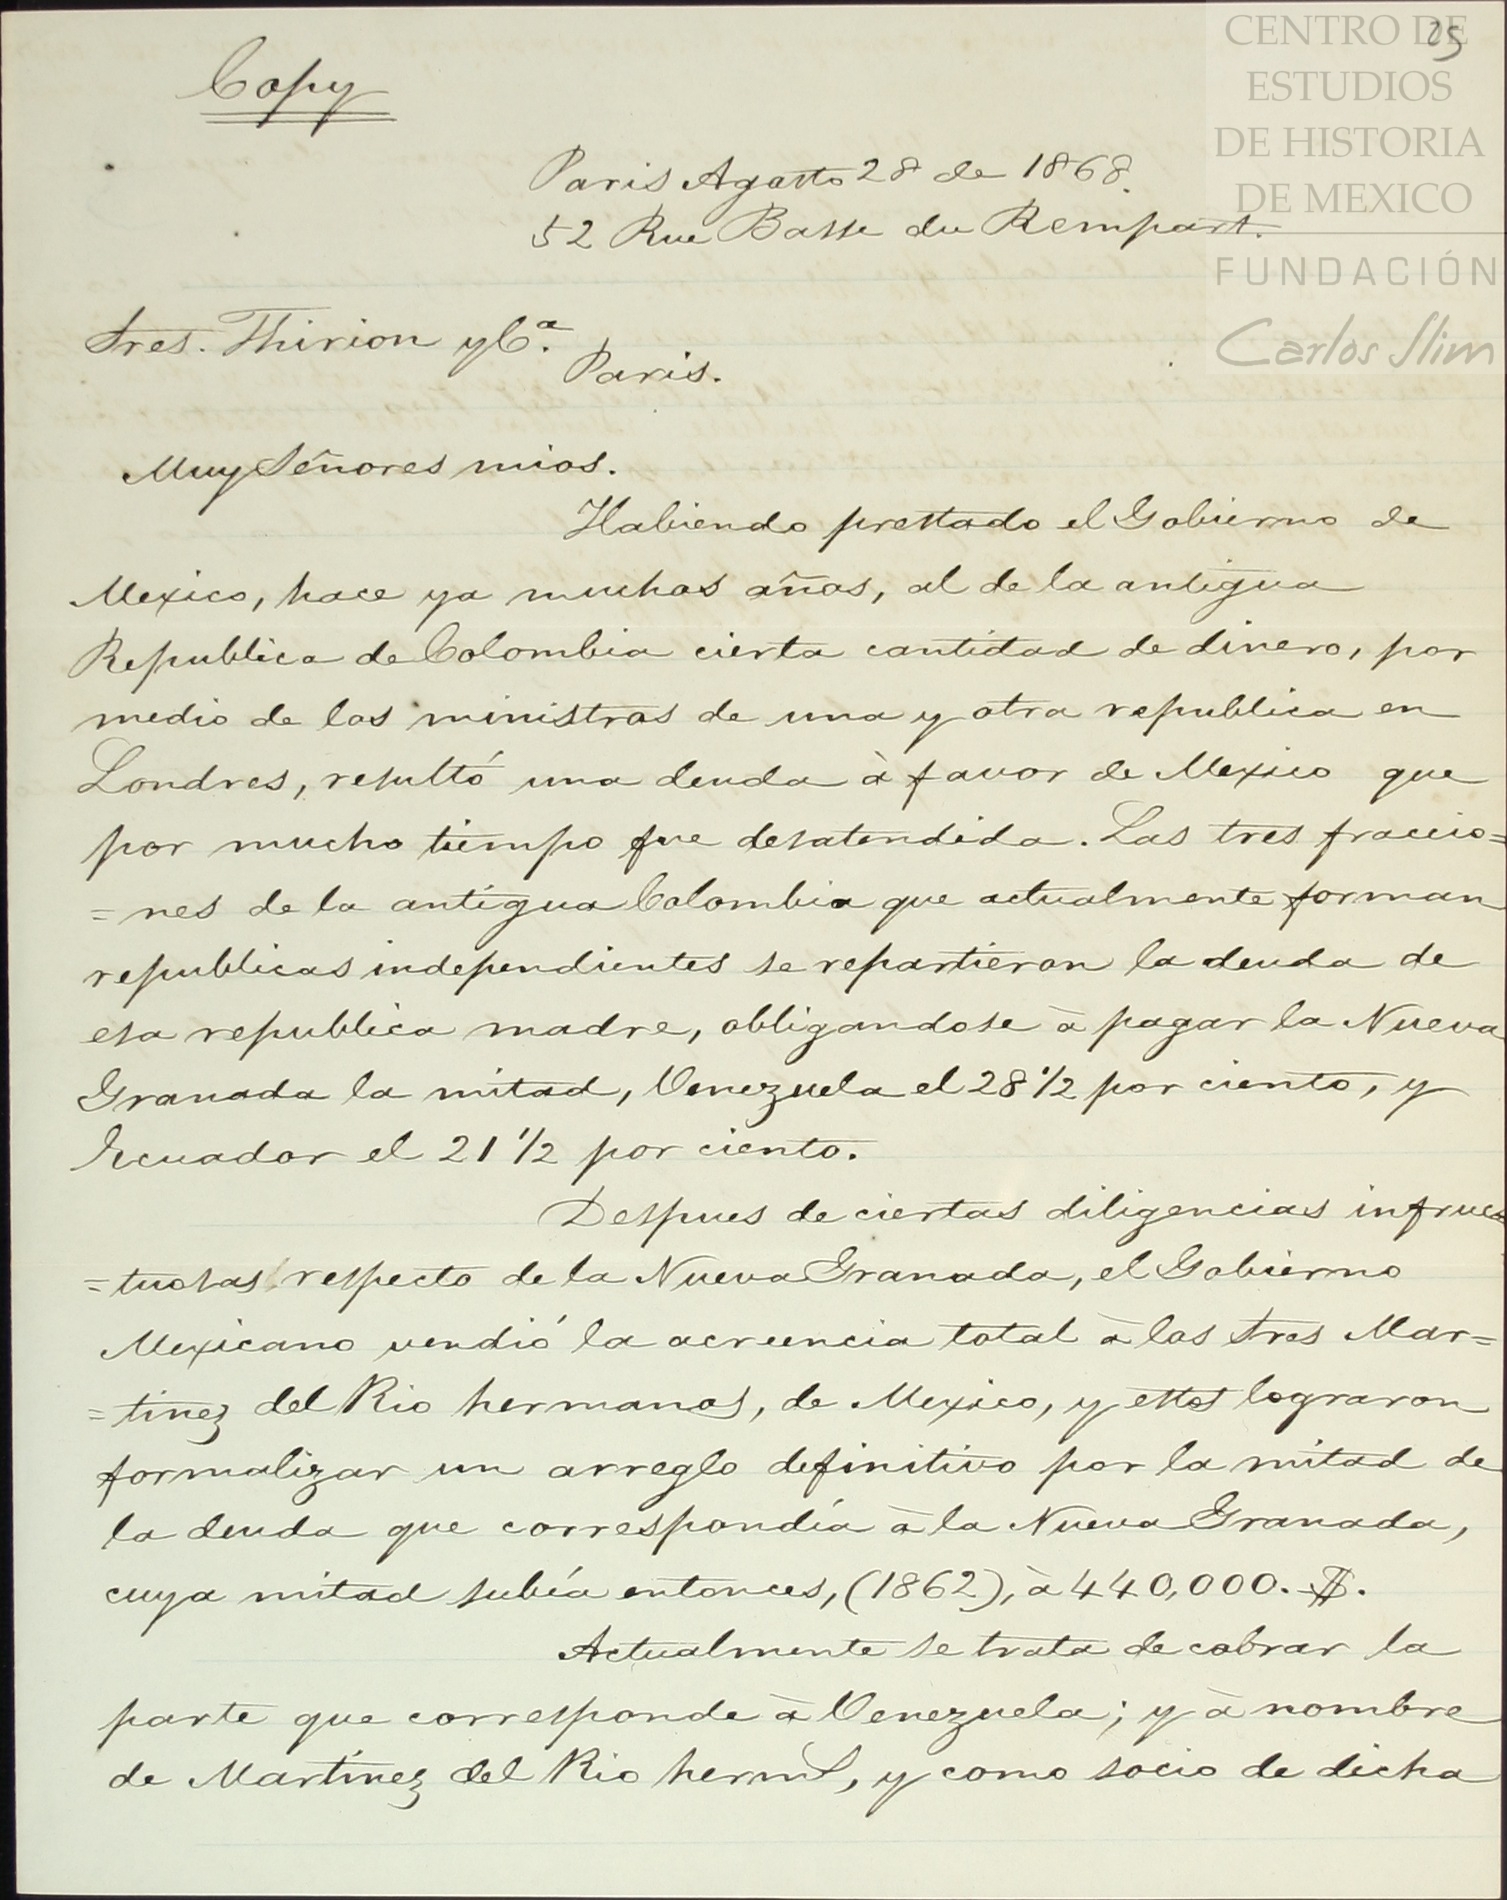 25
CENTRO DE
ESTUDIOS
DE HISTORIA
DE MEXICO
FUNDACIÓN
Carlos Slim
Copy
Paris Agosto 28 de 1868.
52 Rue Basse du Rempart.
Sres. Thirion y Cª.
Paris.
Muy Señores mios.
Habiendo prestado el Gobierno de
Mexico, hace ya muchos años, al de la antigua
Republica de Colombia cierta cantidad de dinero, por
medio de los ministros de una y otra republica en
Londres, resultó una deuda à favor de Mexico que
por mucho tiempo fue desatendida. Las tres fraccio=
=nes de la antigua Colombia que actualmente forman
republicas independientes se repartieron la deuda de
esa republica madre, obligandose à pagar la Nueva
Granada la mitad, Venezuela el 28 1/2 por ciento, y
Ecuador el 21 1/2 por ciento.
Despues de ciertas diligencias infruc=
=tuosas respecto de la Nueva Granada, el Gobierno
Mexicano vendió la acreencia total à los Sres Mar=
=tinez del Rio hermanos, de Mexico, y estos lograron
formalizar un arreglo definitivo por la mitad de
la deuda que correspondía à la Nueva Granada,
cuya mitad subía entonces, (1862), à 440,000. $.
Actualmente se trata de cobrar la
parte que corresponde à Venezuela; y à nombre
de Martínez del Rio hermˢ, y como socio de dicha